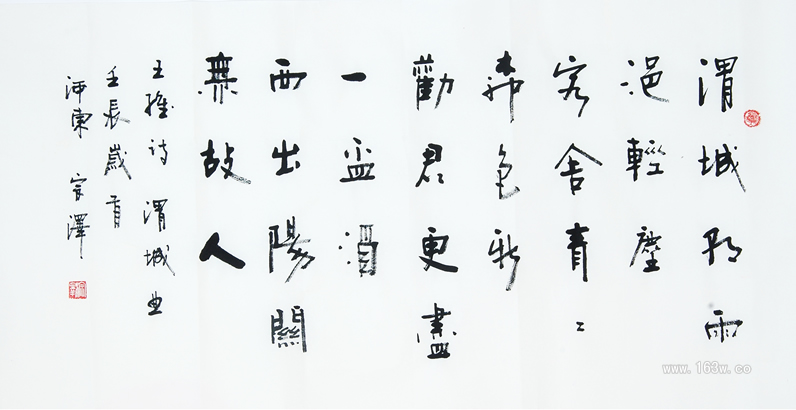 渭城朝雨
浥輕塵
客舍青〻
柳色新
勸君更盡
一盃酒
西出陽關
無故人
王維詩 渭城曲
壬辰歲首
河東 宗澤
www.163w.co